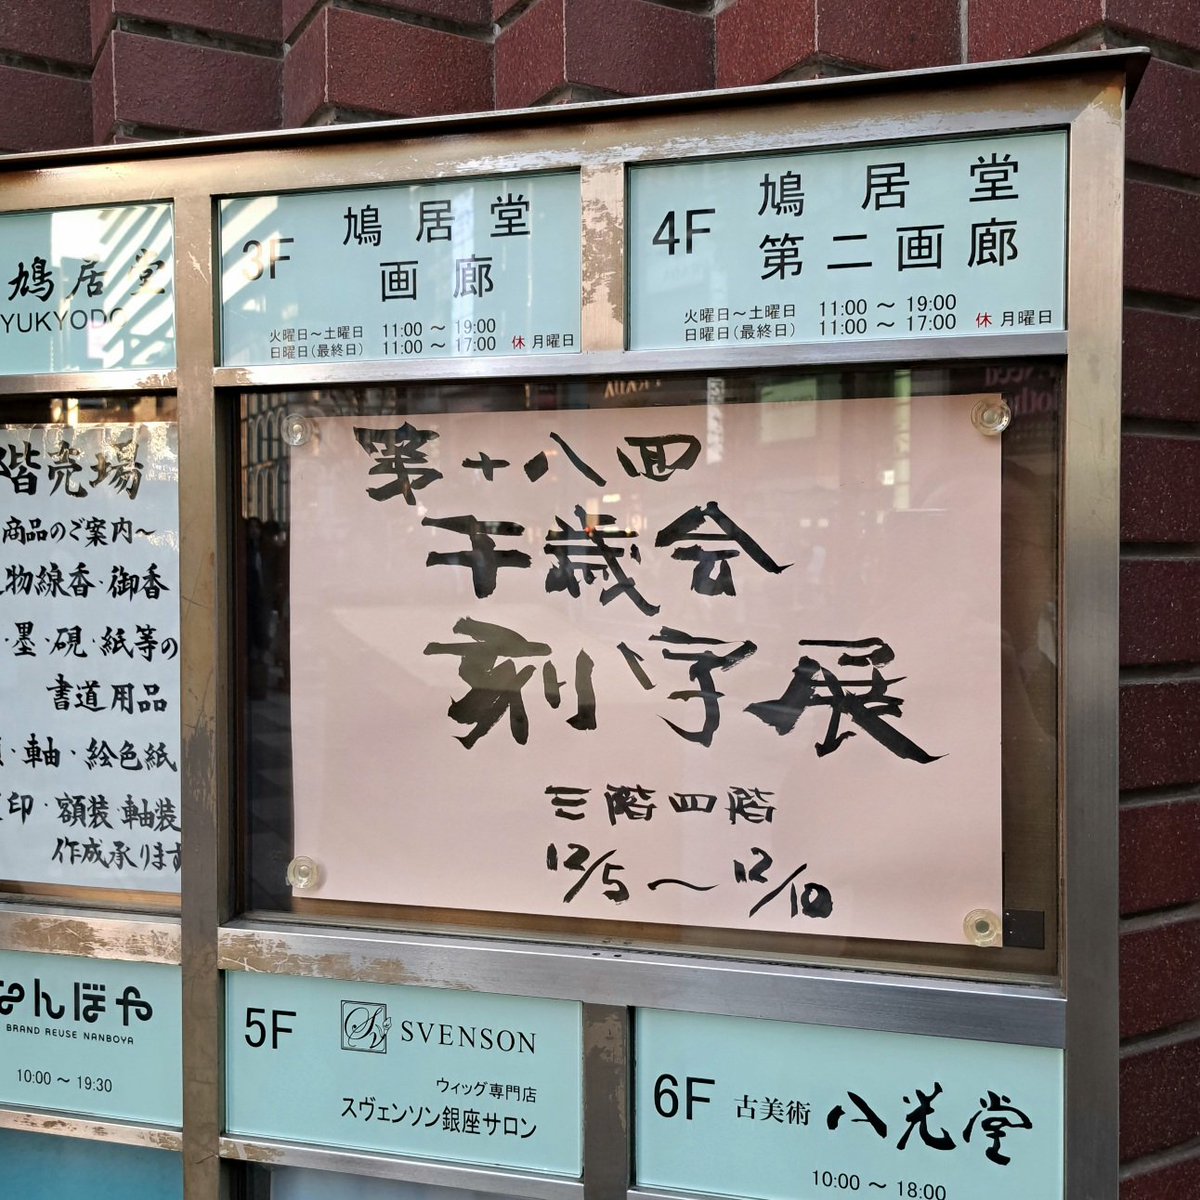 鳩居堂
YUKYODO
3F 鳩居堂
画廊
火曜日～土曜日 11:00 ～ 19:00
日曜日(最終日) 11:00 ～ 17:00 休 月曜日
4F 鳩居堂
第二画廊
火曜日～土曜日 11:00 ～ 19:00
日曜日(最終日) 11:00 ～ 17:00 休 月曜日
階売場
商品のご案内～
物線香・御香
・墨・硯・紙等の
書道用品
・軸・絵色紙
印・額装・軸装
作成承ります
第十八回
千歳会
刻字展
三階四階
12/5～12/10
なんぼや
BRAND REUSE NANBOYA
10:00 ～ 19:30
5F SVENSON
ウィッグ専門店
スヴェンソン銀座サロン
6F 古美術 八光堂
10:00 ～ 18:00